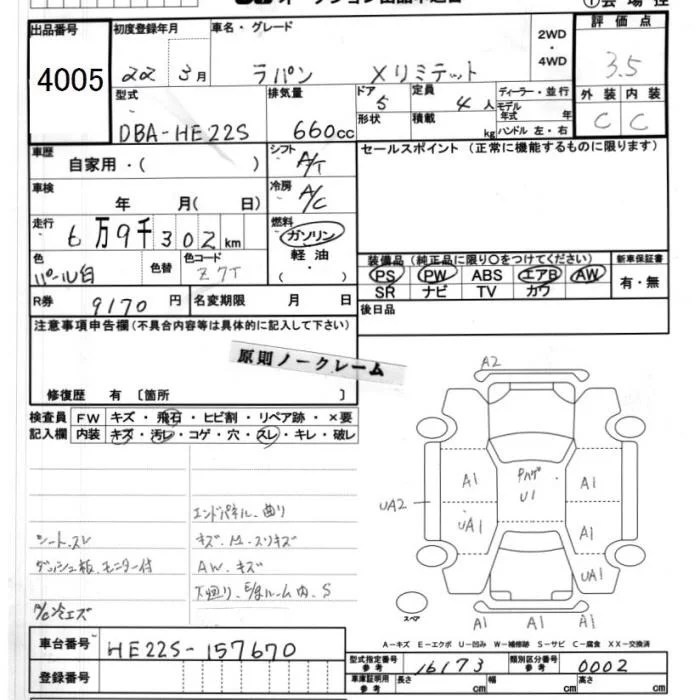 出品番号 初度登録年月 車名・グレード 2WD・4WD 評価点
4005 22 3月 ラパン Xリミテット 3.5
型式 排気量 ドア 5 定員 4人 ディーラー・並行 外装 内装
DBA-HE22S 660cc 形状 積載 kg モデル年式 年 C C
ハンドル 左・右
車歴 自家用・( ) シフト A/T セールスポイント (正常に機能するものに限ります)
車検 年 月( 日) 冷房 A/C
走行 6万9千302km 燃料 ガソリン
軽油
・( )
色 パール白 色替 色コード Z7T
装備品 (純正品に限り○をつけてください) 新車保証書
PS PW ABS エアB AW 有・無
SR ナビ TV カワ
R券 9170円 名変期限 月 日 後日品
注意事項申告欄(不具合内容等は具体的に記入して下さい)
原則ノークレーム
修復歴 有 〔箇所 〕
検査員 FW キズ・飛石・ヒビ割・リペア跡・×要
記入欄 内装 キズ・汚レ・コゲ・穴・スレ・キレ・破レ
エンドパネル、曲り
シート、スレ
AW、キズ
ダッシュ板、モニター付
A/C冷エズ
A2
A1 U1 A1
UA2 UA1 A1
UA1
A1 A1 A1
スペア
A-キズ E-エクボ U-凹み W-補修跡 S-サビ C-腐食 XX-交換済
車台番号 HE22S-157670
型式指定番号 参考 16173 類別区分番号 参考 0002
登録番号 車庫証明用 参考 長さ cm 幅 cm 高さ cm